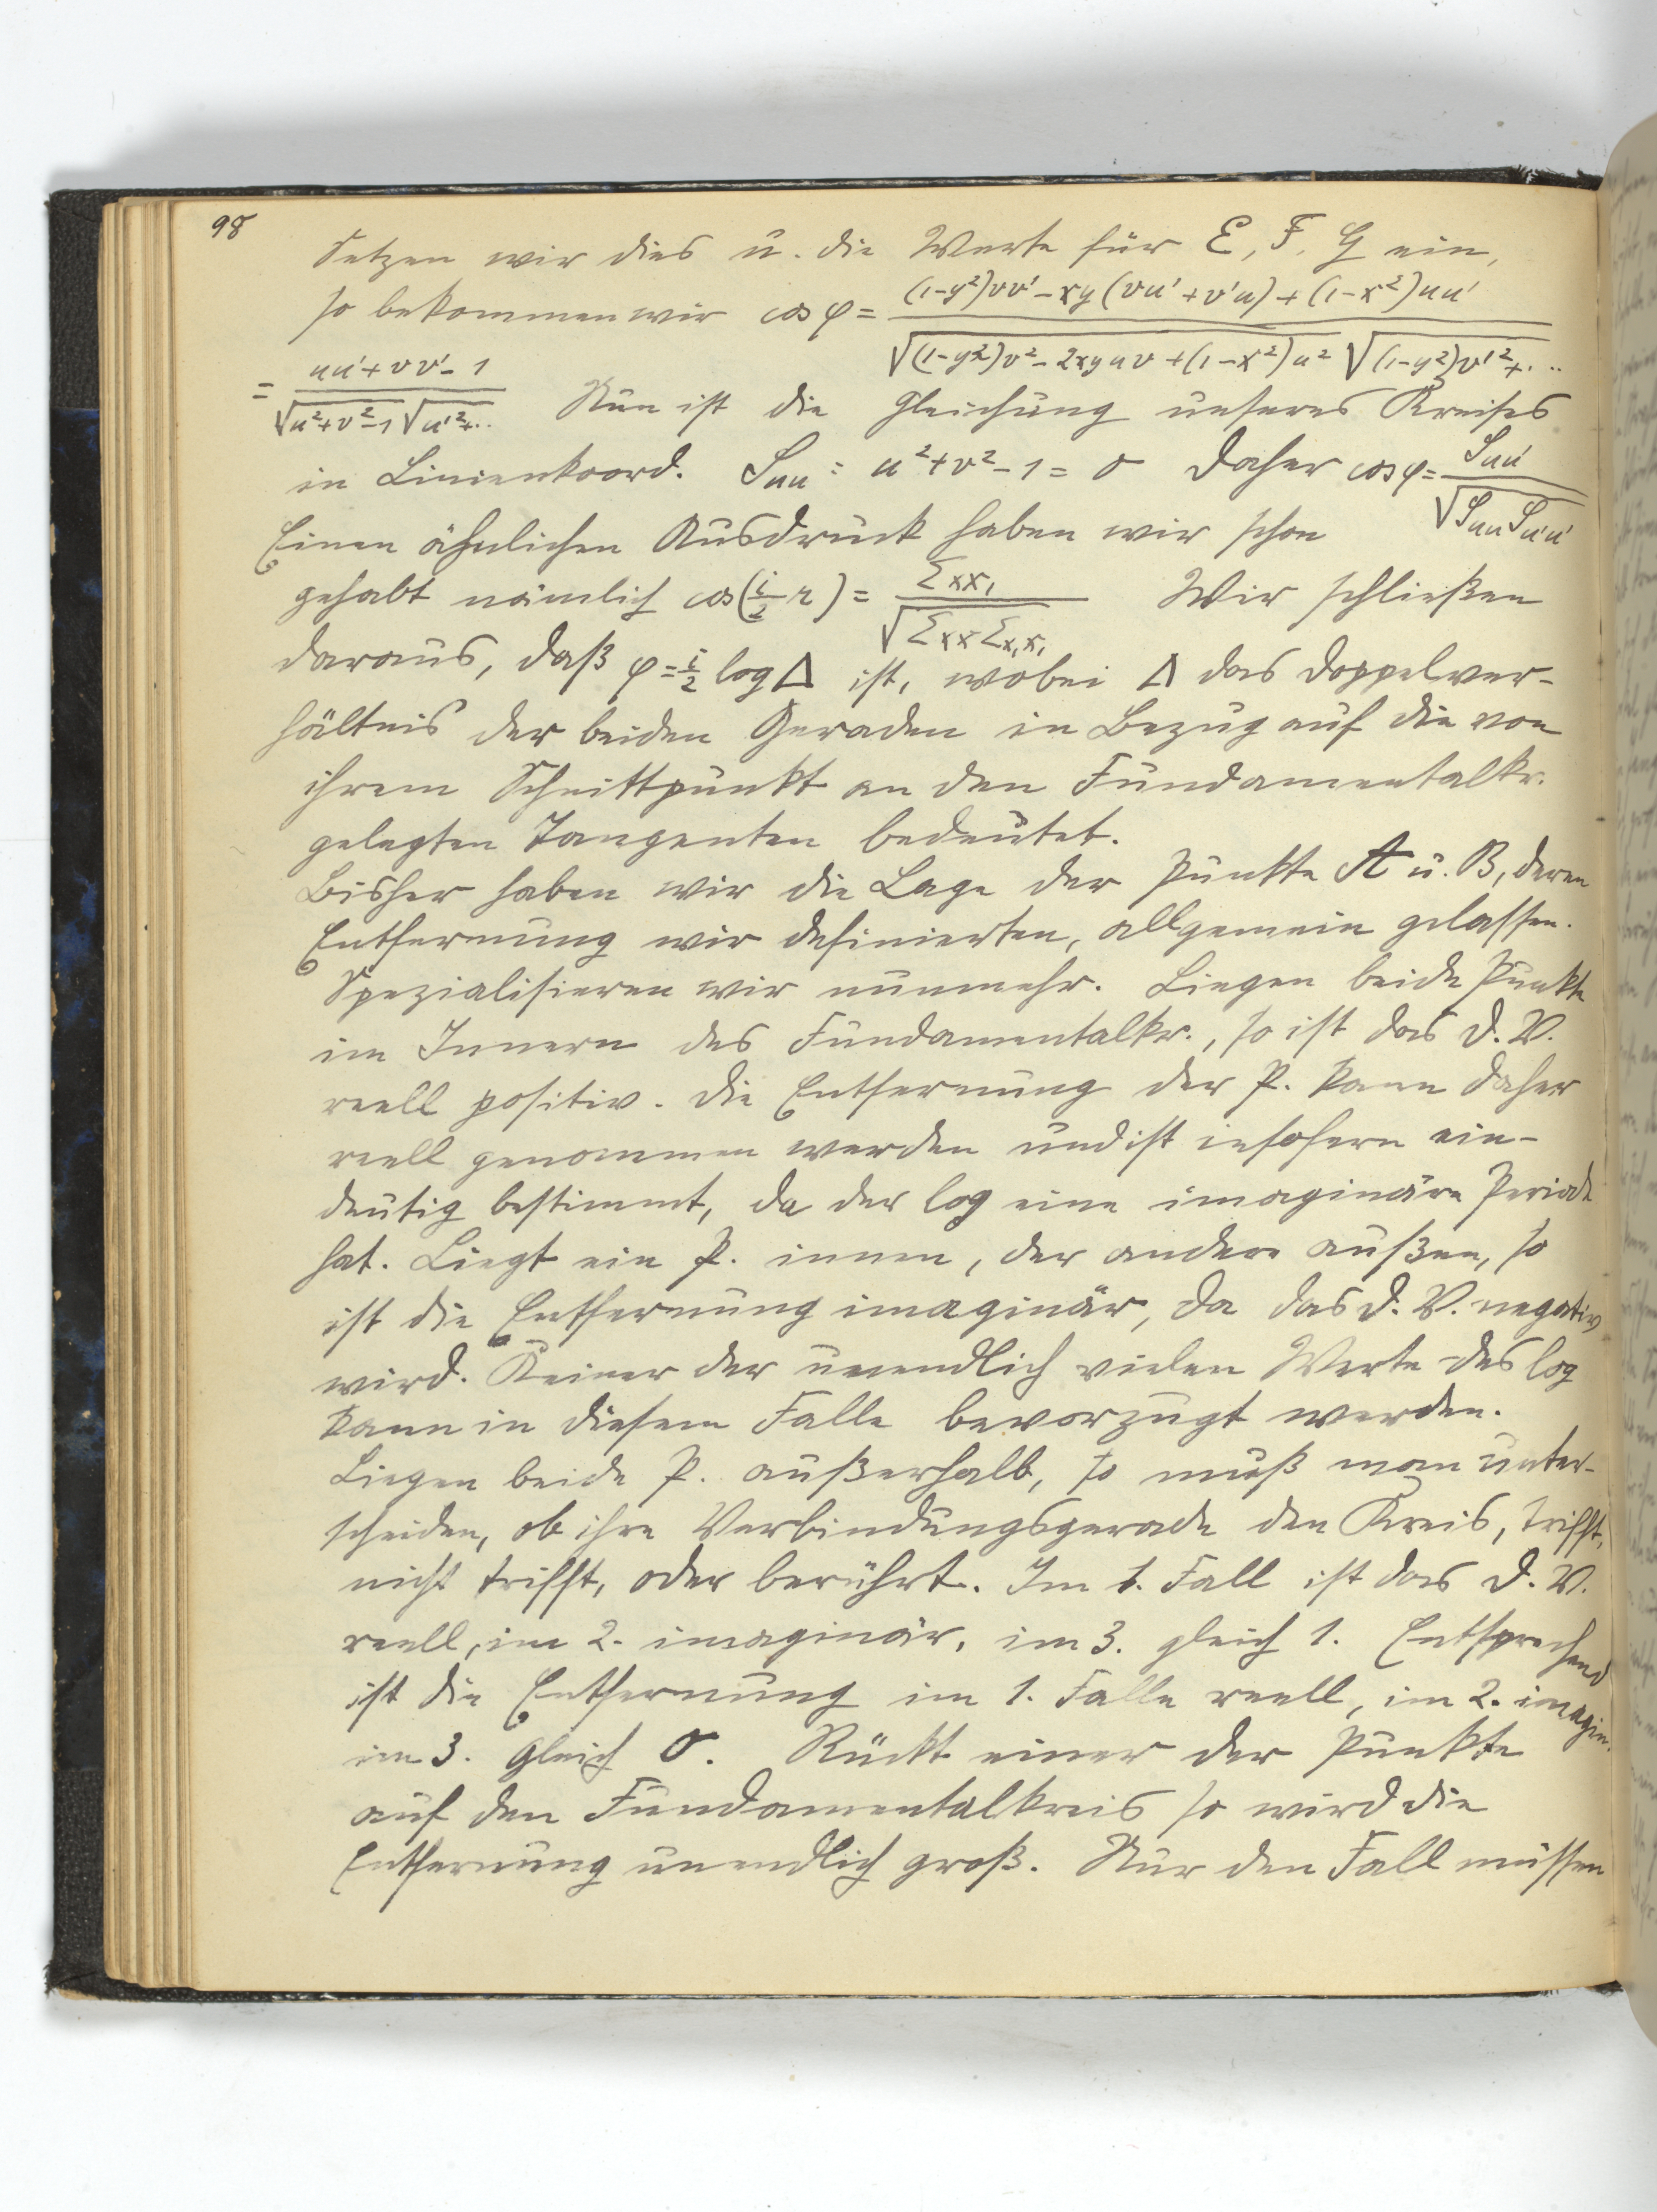 98
Setzen wir dies u. die Werte für E, F, G ein,
so bekommen wir cos φ = ((1-y²)vv' - xy(vu' + v'u) + (1-x²)uu') / (√(1-y²)v² - 2xyuv + (1-x²)u² √(1-y²)v'² + ...)
= (uu' + vv' - 1) / (√u²+v²-1 √u'²+..) Nun ist die Gleichung unseres Kreises
in Linienkoord. Suu = u²+v²-1 = 0 Daher cos φ = Suu' / √Suu Su'u'
Einen ähnlichen Ausdruck haben wir schon
gehabt nämlich cos(i/2 r) = Σxx₁ / √Σxx Σx₁x₁ Wir schließen
daraus, daß φ = i/2 log Δ ist, wobei Δ das Doppelver-
hältnis der beiden Geraden in Bezug auf die von
ihrem Schnittpunkt an den Fundamentalkr.
gelegten Tangenten bedeutet.
Bisher haben wir die Lage der Punkte A u. B, deren
Entfernung wir definierten, allgemein gelassen.
Spezialisieren wir nunmehr. Liegen beide Punkte
im Innern des Fundamentalkr., so ist das D. V.
reell positiv. Die Entfernung der P. kann daher
reell genommen werden und ist insofern ein-
deutig bestimmt, da der log eine imaginäre Periode
hat. Liegt ein P. innen, der andere außen, so
ist die Entfernung imaginär, da das D. V. negativ
wird. Keiner der unendlich vielen Werte des log
kann in diesem Falle bevorzugt werden.
Liegen beide P. außerhalb, so muß man unter-
scheiden, ob ihre Verbindungsgerade den Kreis, trifft,
nicht trifft, oder berührt. Im 1. Fall ist das D. V.
reell, im 2. imaginär, im 3. gleich 1. Entsprechend
ist die Entfernung im 1. Falle reell, im 2. imagin.
im 3. gleich 0. Rückt einer der Punkte
auf den Fundamentalkreis so wird die
Entfernung unendlich groß. Nur den Fall müssen